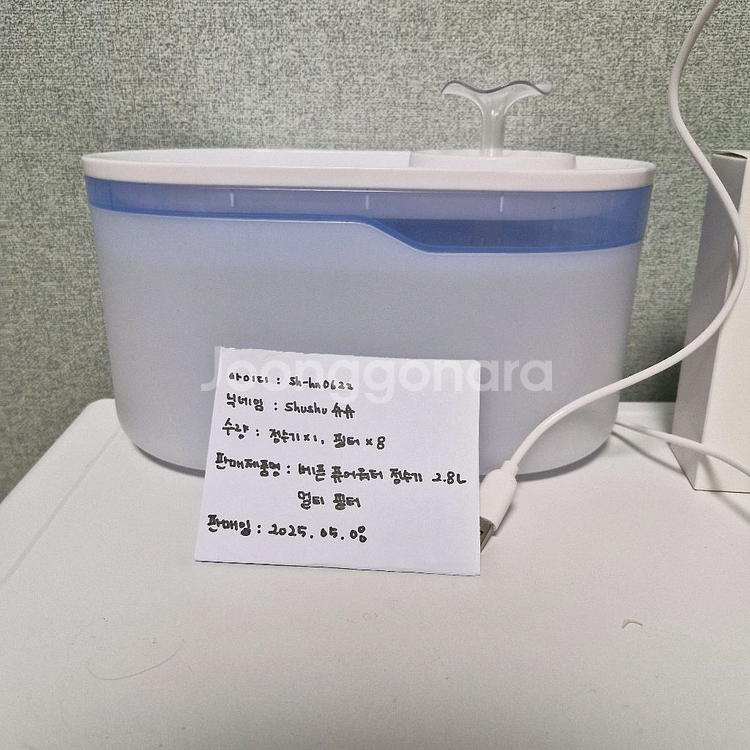 Joonggonara
아이디 : Sh-hn0622
닉네임 : Shushu 슈슈
수량 : 정수기 x1, 필터 x8
판매제품명 : 버즌 퓨어워터 정수기 2.8L
멀티 필터
판매일 : 2025. 05. 08